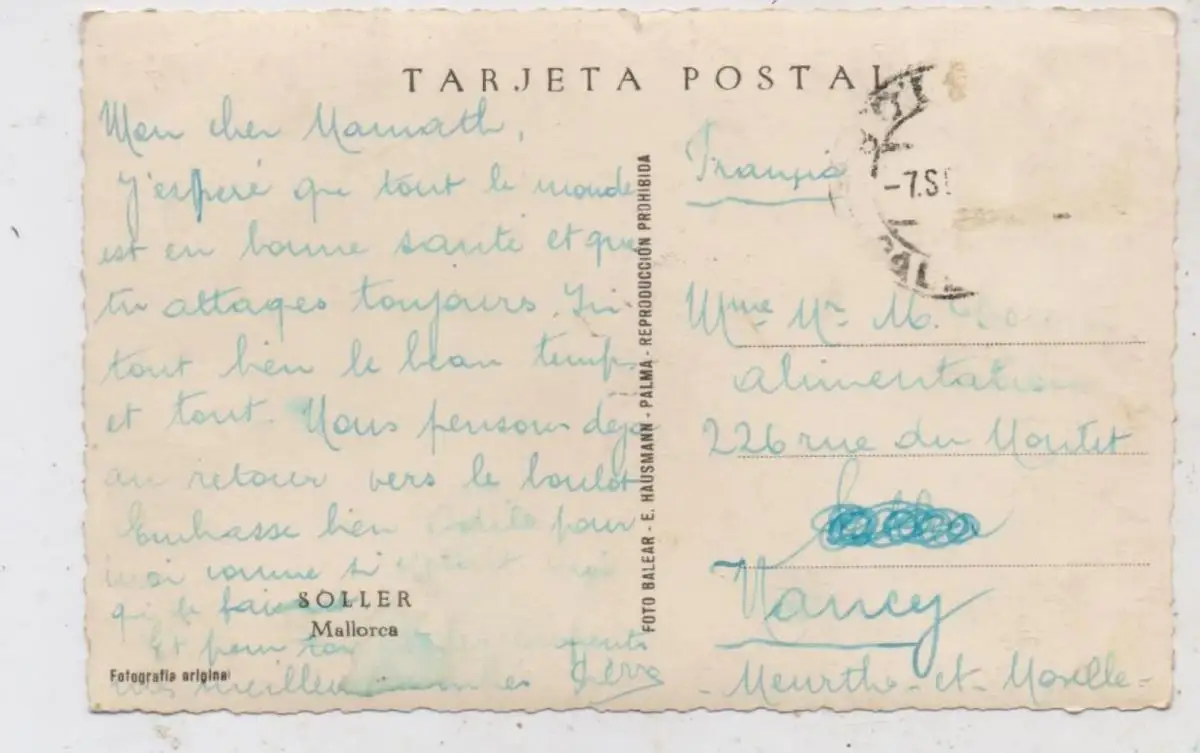 TARJETA POSTAL
Mon cher
J'espère que tout le monde
est en bonne santé et que
tu attages toujours. Ici
tout bien le beau temps
et tout. Nous pensons deja
au retour vers le boulot
Embrasse bien pour
moi comme si moi
qui le
Et pour toi
SOLLER
Mallorca
Fotografía original
FOTO BALEAR - E. HAUSMANN - PALMA - REPRODUCCIÓN PROHIBIDA
-7.S
Mme Mr M.
alimentation
226 rue du Montet
Nancy
- Meurthe-et-Moselle-